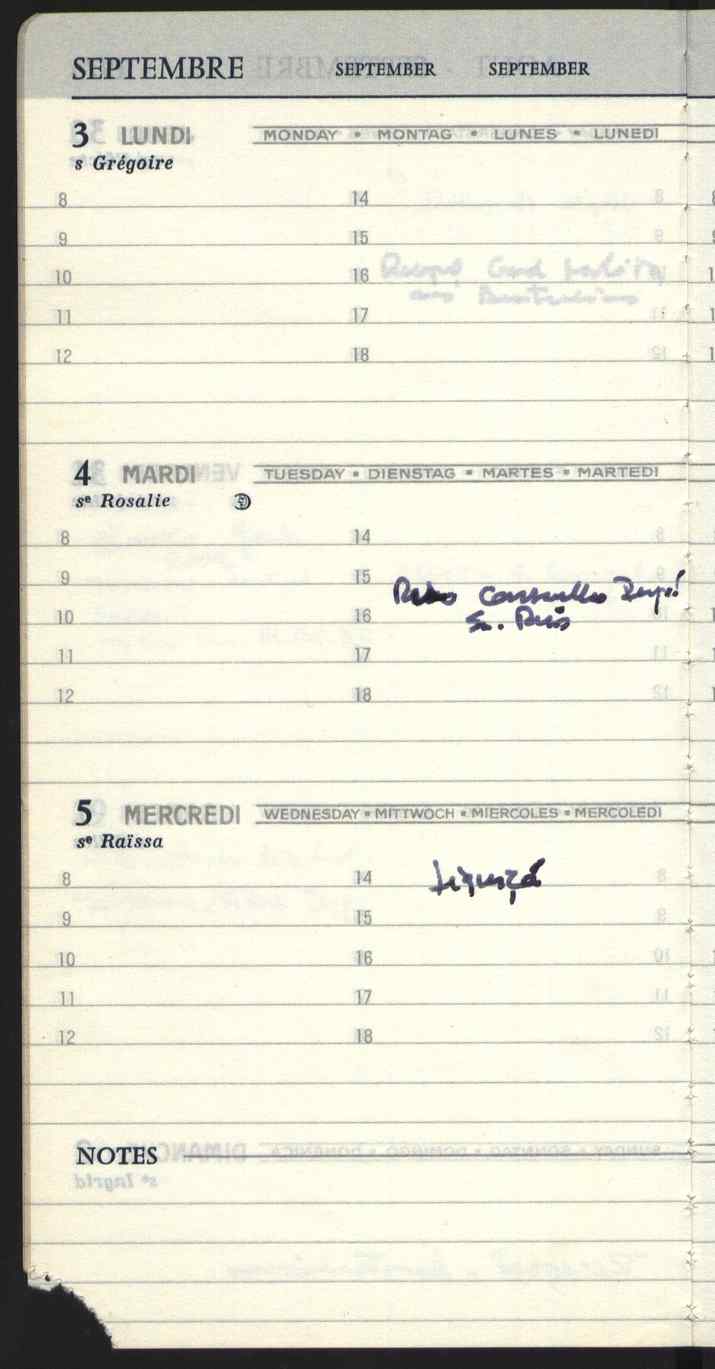 SEPTEMBRE SEPTEMBER SEPTEMBER
3 LUNDI MONDAY • MONTAG • LUNES • LUNEDI
s Grégoire
8 14
9 15
10 16
11 17
12 18
4 MARDI TUESDAY • DIENSTAG • MARTES • MARTEDI
sᵉ Rosalie
8 14
9 15
10 16
11 17
12 18
5 MERCREDI WEDNESDAY • MITTWOCH • MIERCOLES • MERCOLEDI
sᵉ Raïssa
8 14
9 15
10 16
11 17
12 18
NOTES